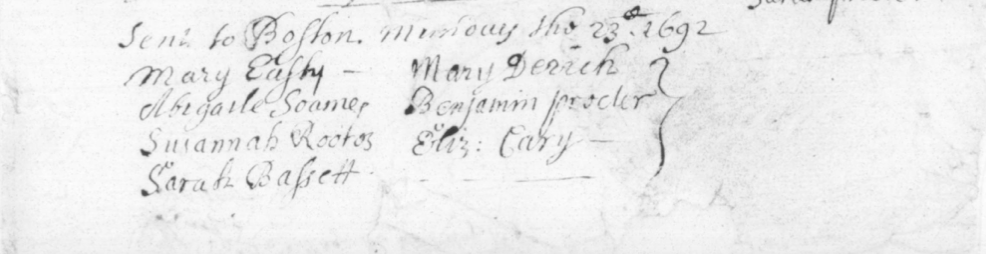 Sent to Boston. Munday the 23.d 1692
Mary Easty – Mary Derich
Abigaile Soames Benjamin procter
Susannah Rootes Eliz: Cary –
Sarah Bassett